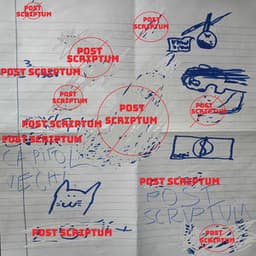 POST SCRIPTUM
POST SCRIPTUM
POST SCRIPTUM
POST SCRIPTUM
POST SCRIPTUM
POST SCRIPTUM
POST SCRIPTUM
POST SCRIPTUM
POST SCRIPTUM
CAPITOL
VECHI
POST SCRIPTUM
POST
SCRIPTUM
POST SCRIPTUM
POST SCRIPTUM